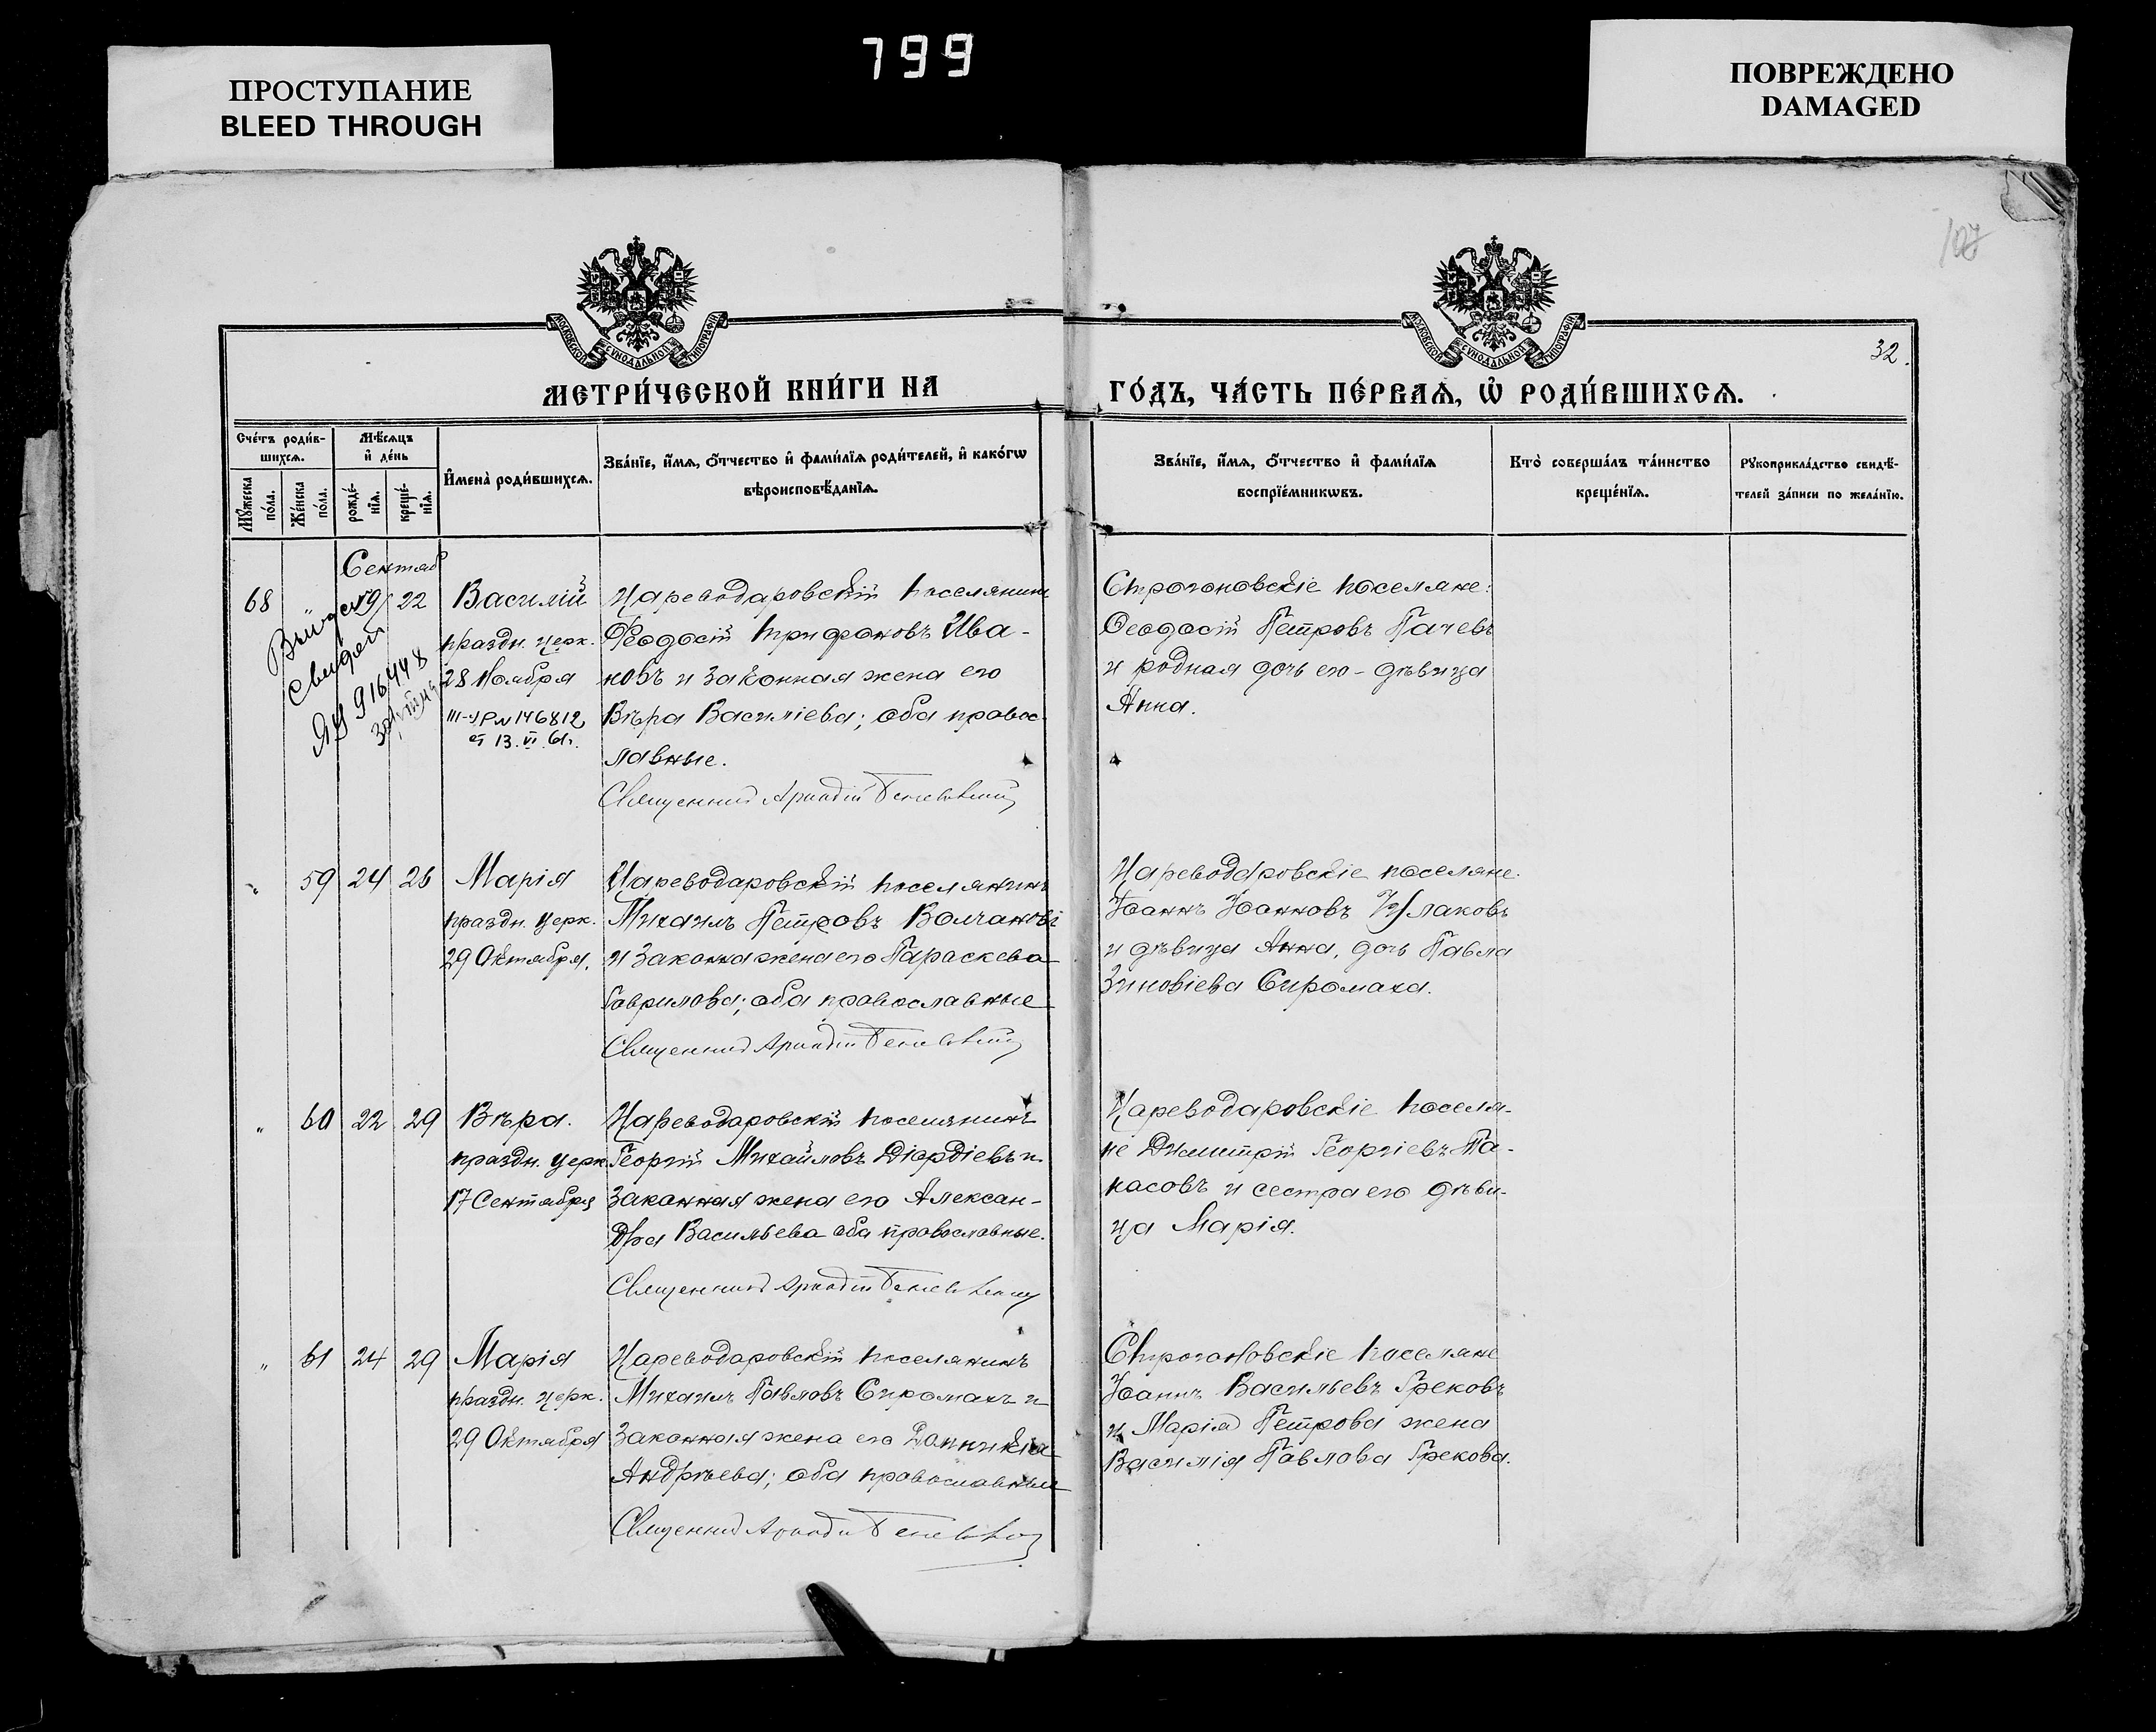 799
ПРОСТУПАНИЕ
BLEED THROUGH
ПОВРЕЖДЕНО
DAMAGED
107
32.
МОСКОВСКОЙ СѴНОДАЛЬНОЙ ТИПОГРАФІИ
МОСКОВСКОЙ СѴНОДАЛЬНОЙ ТИПОГРАФІИ
МЕТРИ́ЧЕСКОЙ КНИ́ГИ НА
ГО́ДЪ, ЧА́СТЬ ПЕ́РВАѦ, Ѡ҆ РОДИ́ВШИХСѦ.
Сче́тъ роди́в-
шихсѧ.
Мꙋ́жеска
по́ла.
Же́нска
по́ла.
Мѣ́сѧцъ
и҆ де́нь
рожде́-
нїѧ.
креще́-
нїѧ.
И҆мена̀ роди́вшихсѧ.
Зва́нїе, и҆́мѧ, ѻ҆́тчество и҆ фами́лїѧ роди́телей, и҆ како́гѡ
вѣроисповѣ́данїѧ.
Зва́нїе, и҆́мѧ, ѻ҆́тчество и҆ фами́лїѧ
воспрїе́мникѡвъ.
Кто̀ соверша́лъ та́инство
креще́нїѧ.
Рꙋкоприкла́дство свидѣ́-
телей за́писи по жела́нїю.
Сентяб
68 " 19 22
Василій
праздн. церк.
28 Ноября
III-УР № 146812
13. VI. 61г.
Выдан
Свидет
ЯУ 916448
Цареводаровскій поселянинъ
Ѳеодосій Трифоновъ Ива-
новъ и законная жена его
Вѣра Василіева; оба правос-
лавные.
Священникъ Аркадій
Строгоновскіе поселяне:
Ѳеодосій Петровъ Пачевъ
и родная дочь его - дѣвица
Анна.
" 59 24 26
Марія
праздн. церк.
29 Октября.
Цареводаровскій поселянинъ
Михаилъ Петровъ Волчановъ
и законна жена его Параскева
Гаврилова; оба православные
Священникъ Аркадій
Цареводаровскіе поселяне.
Іоаннъ Іоанновъ
и дѣвица Анна, дочь Павла
Зиновіева Сиромаха.
" 60 22 29
Вѣра.
праздн. церк
17 Сентября
Цареводаровскій поселянинъ
Георгій Михайловъ Діордіевъ и
законная жена его Алексан-
дра Васильева оба православные.
Священникъ Аркадій
Цареводаровскіе поселя-
не Димитрій Георгіевъ Па-
насовъ и сестра его дѣви-
ца Марія.
" 61 24 29
Марія
праздн. церк.
29 Октября
Цареводаровскій поселянинъ
Михаилъ Павловъ Сиромахъ и
законная жена его Домникія
Андрѣева; оба православные
Священникъ Аркадій
Строгоновскіе поселяне
Іоаннъ Васильевъ Грековъ
и Марія Петрова жена
Василія Павлова Грекова.